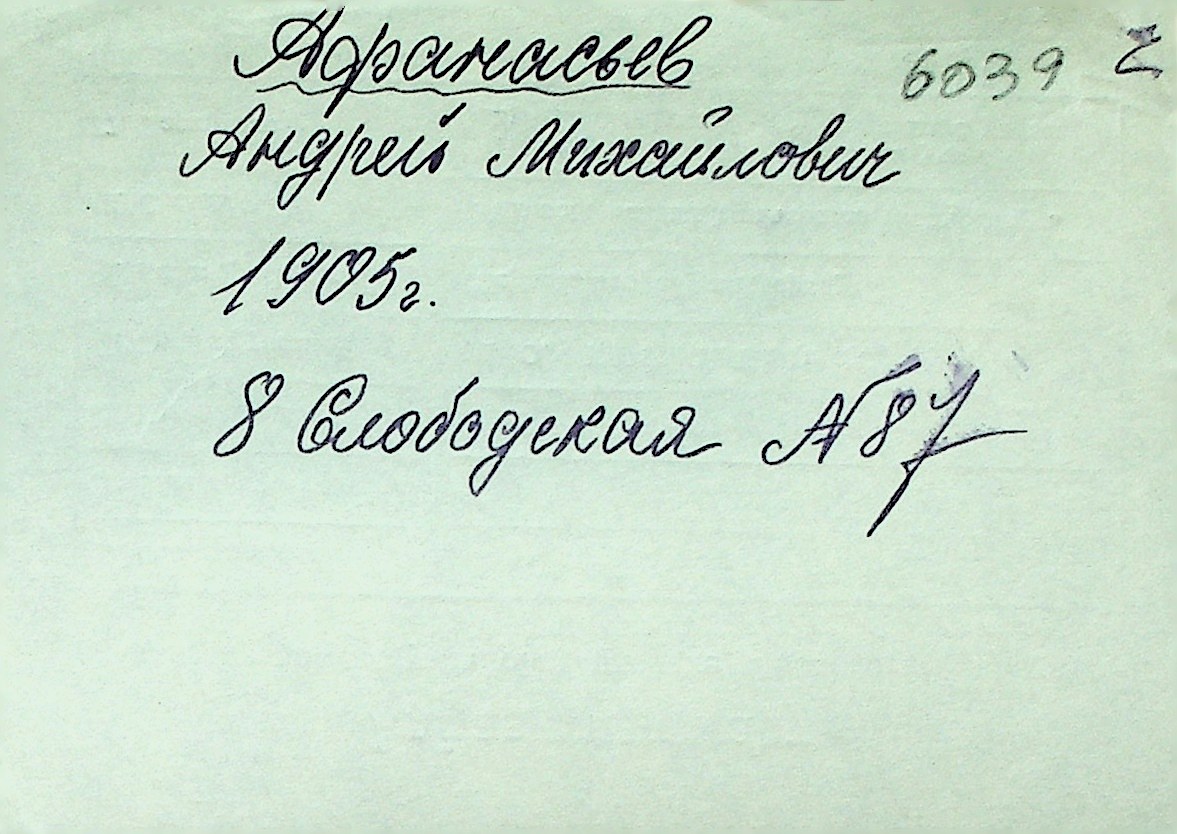 Афанасьев 6039
Андрей Михайлович
1905г.
8 Слободская № 87